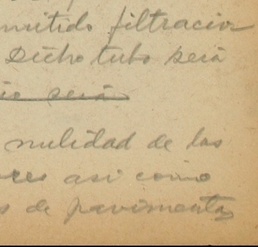 mitido filtracion
Dicho tubo será
io será
nulidad de las
ores asi como
s de pavimentos